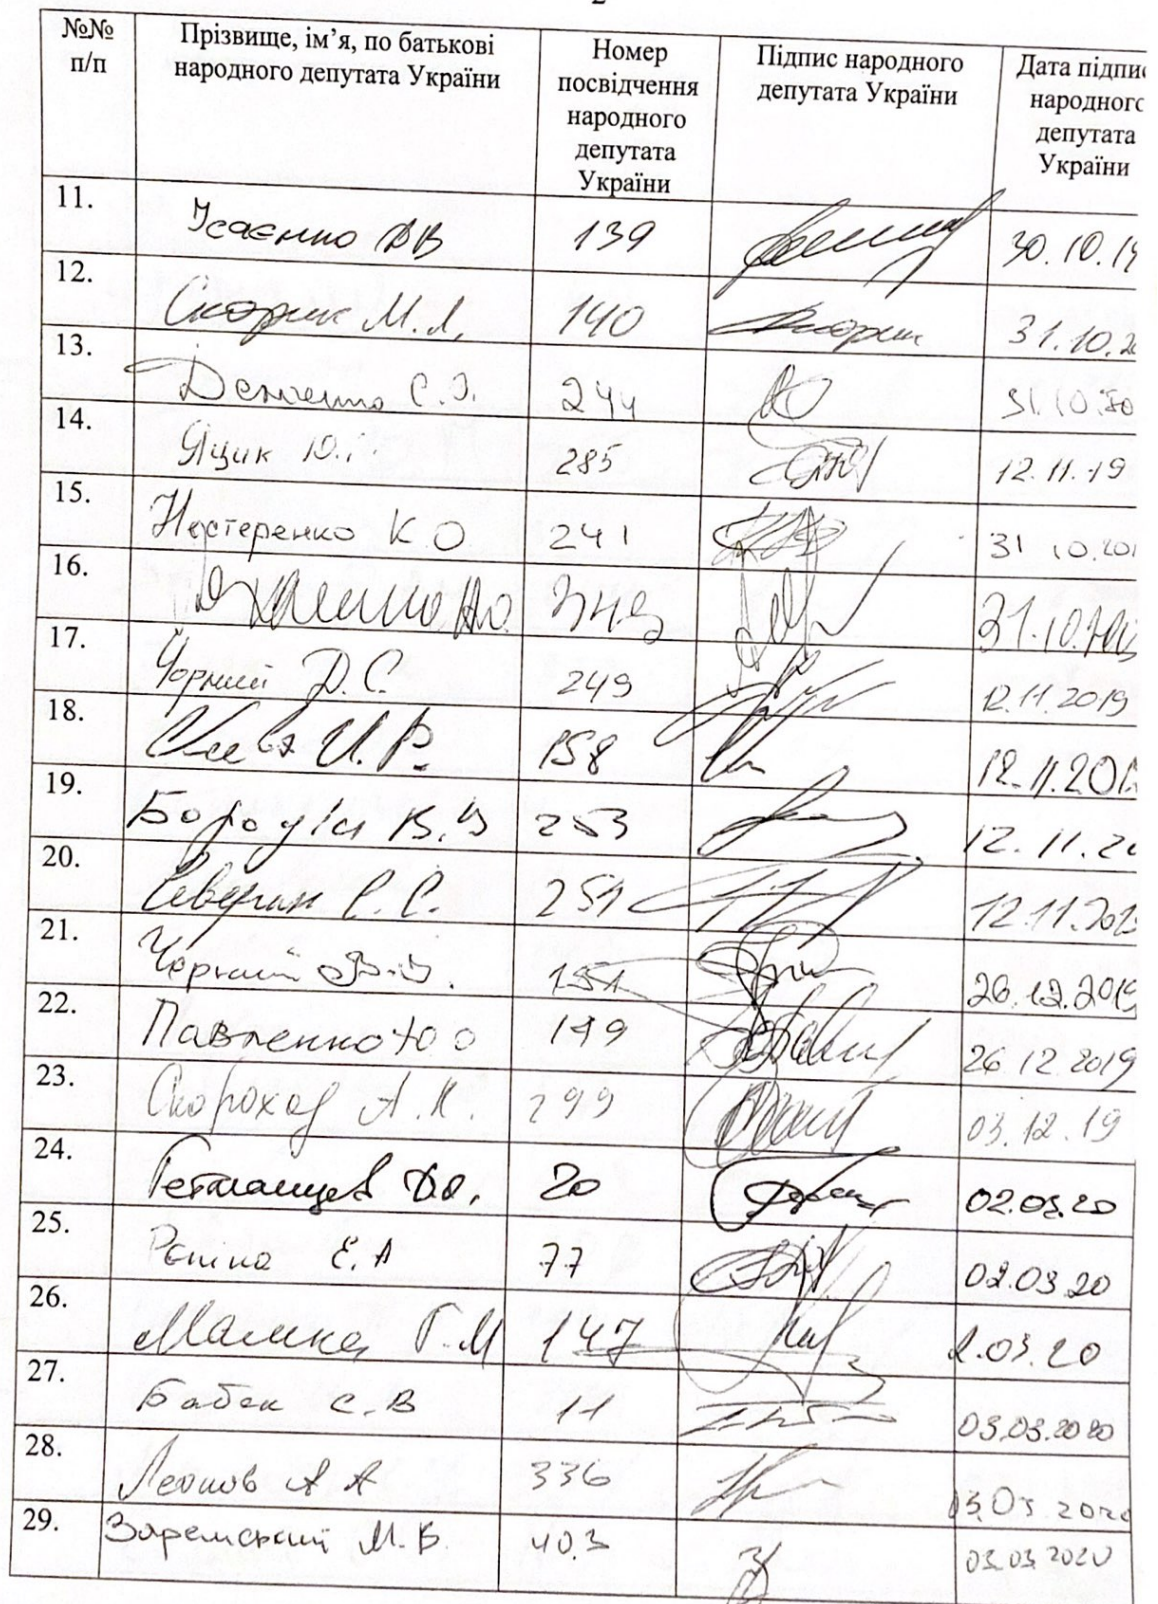 2
№№ п/п Прізвище, ім’я, по батькові народного депутата України Номер посвідчення народного депутата України Підпис народного депутата України Дата підпис народного депутата України
11. Ісаєнко Д В 139 30.10.19
12. Скорик М.Л. 140 31.10.20
13. Демченко С.О. 244 31.10.20
14. Яцик Ю. 285 12.11.19
15. Нестеренко К О 241 31 10.201
16. 343 31.10.2019
17. Чорний Д.С. 249 12.11.2019
18. 158 12.11.201
19. Бородін В.В 253 12.11.20
20. Северин С.С. 251 12.11.2019
21. Чорний В.І. 151 26.12.2019
22. Павленко Ю О 149 26.12.2019
23. Скороход А.К. 299 03.12.19
24. Гетманцев Д.О. 20 02.03.20
25. Рєпіна Е.А 77 02.03.20
26. Мамка Г.М 147 2.03.20
27. Бабак С.В 11 03.03.2020
28. Леонов А А 336 03.03 2020
29. Заремський М.В. 403 03.03 2020